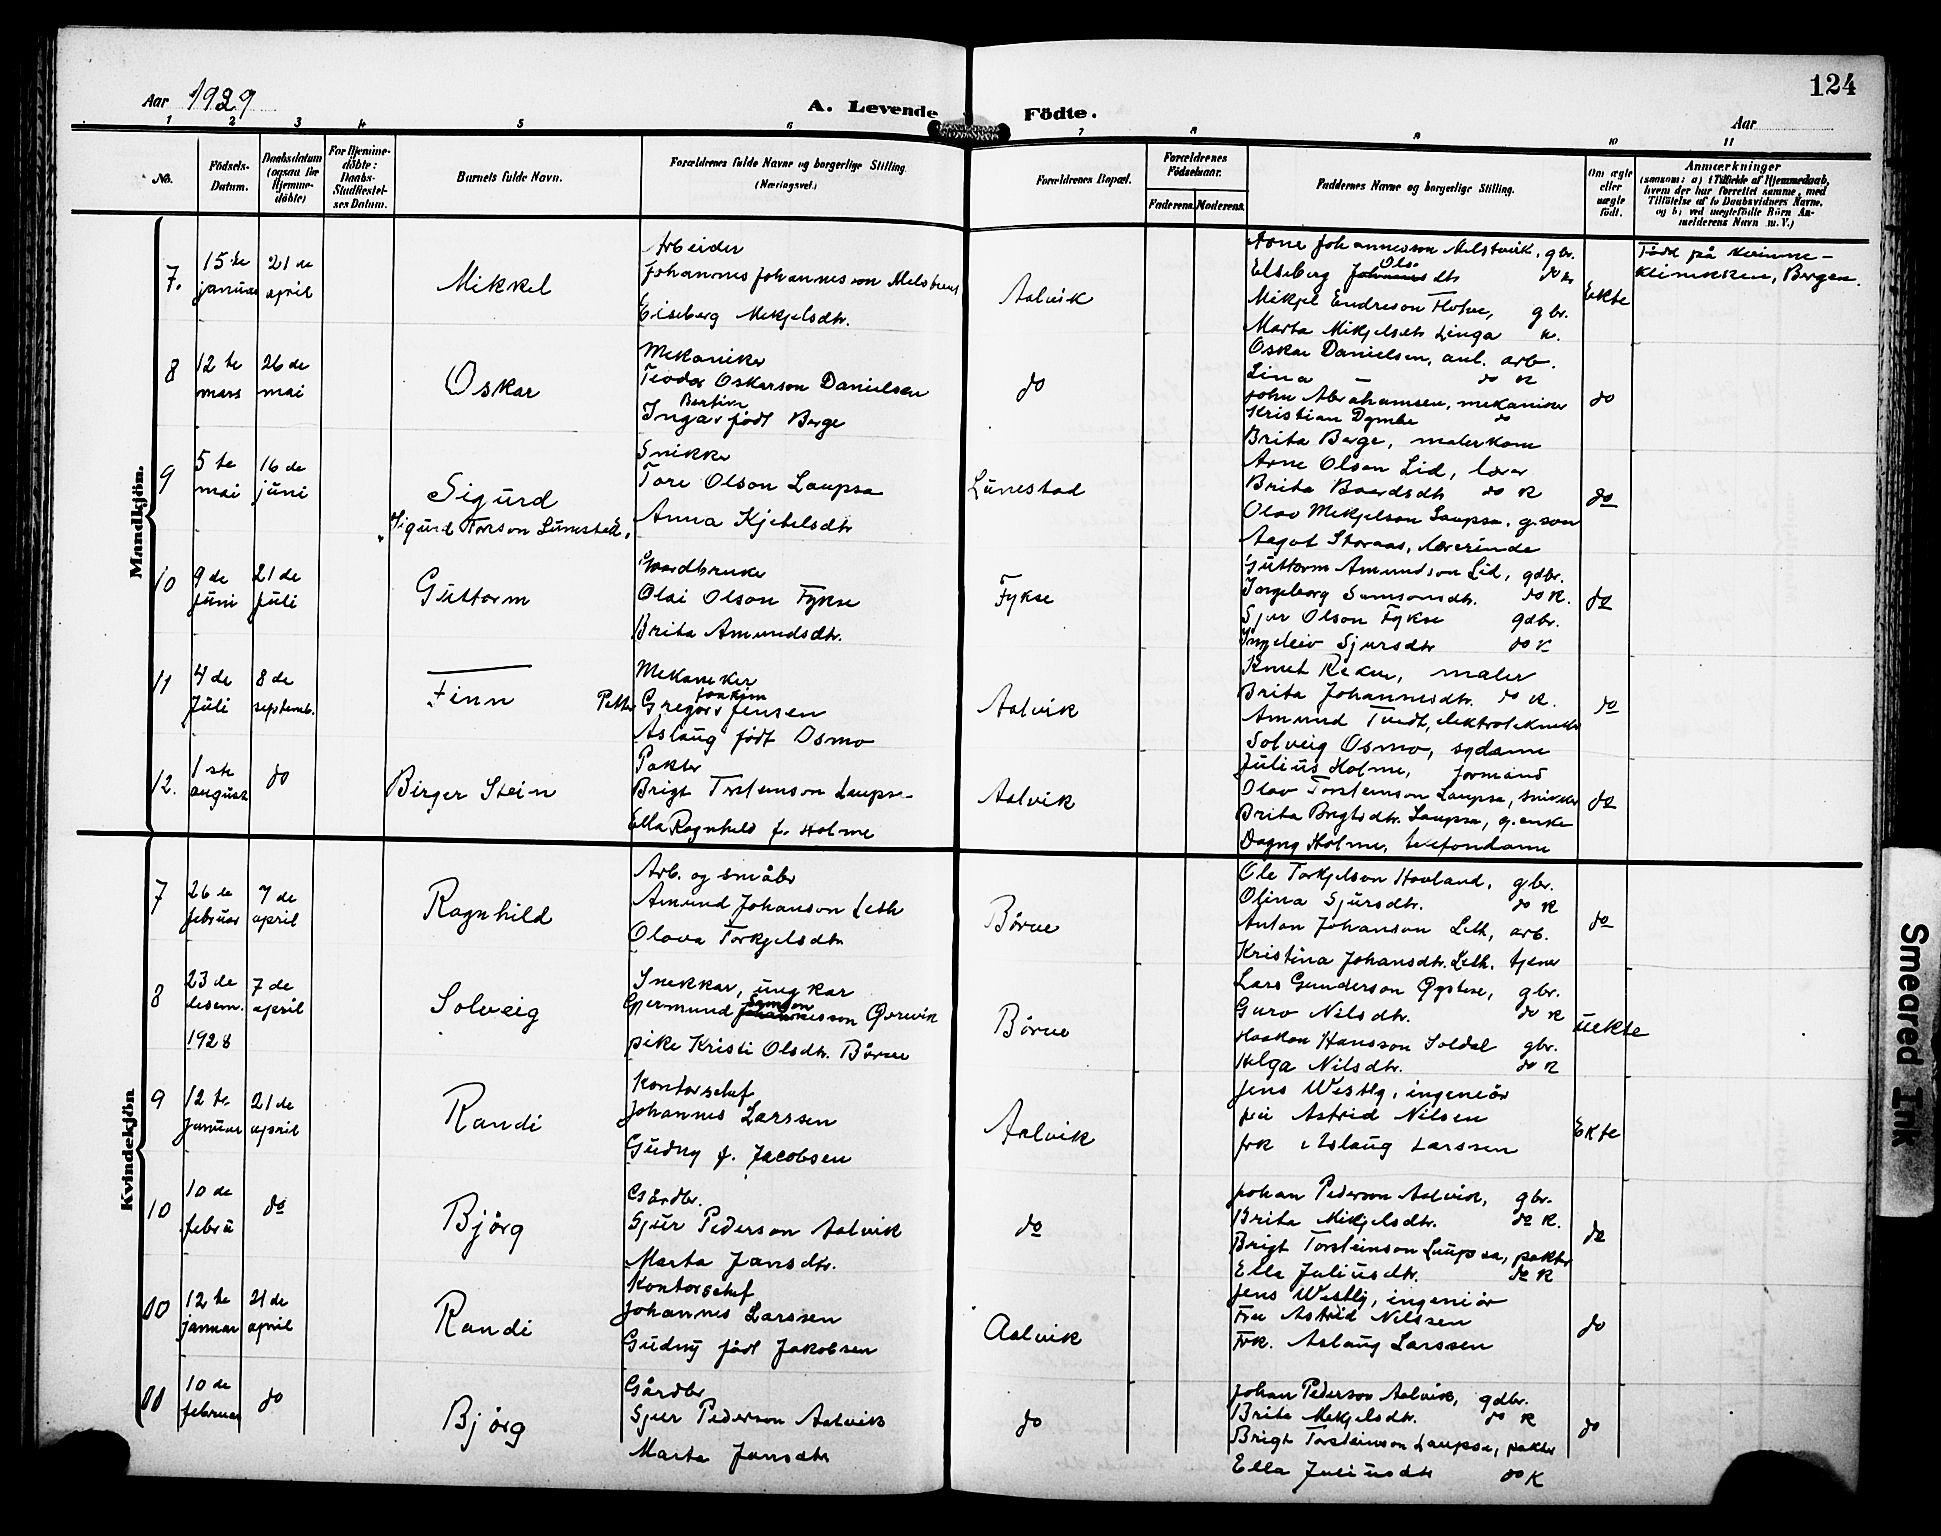 124
Aar 1929
A. Levende Födte.
Aar
1 2 3 4 5 6 7 8 9 10 11
No.
Födsels-Datum.
Daabsdatum (ogsaa for Hjemme-döbte)
For Hjemme-döbte: Daabs-Stadfæstel-ses Datum.
Barnets fulde Navn.
Forældrenes fulde Navne og borgerlige Stilling. (Næringsvei.)
Forældrenes Bopæl.
Forældrenes Födselsaar.
Faderens Moderens
Faddernes Navne og borgerlige Stilling.
Om ægte eller uægte födt.
Anmærkninger
(saasom: a) i Tilfælde af Hjemmedaab, hvem der har forrettet samme, med Tilföielse af to Daabsvidners Navne, og b) ved uægtefödte Börn An-melderens Navn m. V.)
Mandkjön.
7.
15 de januar
21 de april
Mikkel
Arbeider
Johannes Johannesson
Eiseberg Mikjelsdtr.
Aalvik
Arne Johannesson gbr.
Elseberg Ols dtr do k
Mikjel Endreson gbr.
Marta Mikjelsdtr Linga k.
Ekte
Född på kvinne-
klinikken, Bergen.
8
12 te mars
26 de mai
Oskar
Mekaniker
Teodor Oskarson Danielsen
Bertine
Inga, födt Berge
do
Oskar Danielsen, anl. arb.
Lina — do k
John Abrahamsen, mekaniker
Kristian Dymbe do
Brita Berge, malerkone
do
9
5 te mai
16 de juni
Sigurd
"Sigurd Torson Lunestad"
Snikker
Tore Olson Laupsa
Anna Kjetelsdtr
Lunestad
Arne Olson Lid, lærer
Brita Baardsdtr do k
Olav Mikjelson Laupsa, g.son
Aagot Storaas, lærerinde
do
10
9 de juni
21 de juli
Guttorm
Gaardbruker
Olai Olson Fykse
Brita Amundsdtr.
Fykse
Guttorm Amundson Lid, gdbr.
Ingeborg Samsonsdtr. do k.
Sjur Olson Fykse gdbr.
Ingeleiv Sjursdtr do k
do
11
4 de Juli
8 de septemb.
Finn
Mekaniker
Joakim
Petter Gregors Jensen
Aslaug födt Osmo
Aalvik
Knut maler
Brita Johannesdtr. do k.
Amund Tvedt, elektrotekniker
Solveig Osmo, sydame
do
12.
1 ste august
do
Birger Stein
Pakter
Brigt Torsteinson Laupsa
Ella Ragnhild f. Holme
Aalvik
Julius Holme, formand
Olav Torsteinson Laupsa, snikker
Brita Brigtsdtr. Laupsa, g.enke
Dagny Holme, telefondame
do
Kvindekjön
7
26 de februar
7 de april
Ragnhild
Arb. og småbr
Amund Johanson Leth
Olava Torkjelsdtr
Börve
Ole Torkjelson Hovland, gbr.
Olina Sjursdtr. do k
Anton Johanson Leth, arb.
Kristina Johansdtr. Leth, tjener
do
8
23 de desem. 1928
7 de april
Solveig
Snekkar, ung kar
Samson
Gjermund
pike Kristi Olsdtr. Börve
Börve
Lars Gunderson Öystese, gbr.
Guro Nilsdtr. do k
Haakon Hansson Soldal gbr.
Helga Nilsdtr. do k
uekte
9
12 te januar
21 de april
Randi
Kontorschef
Johannes Larssen
Gudny f. Jacobsen
Aalvik
Jens Westly, ingeniör
frü Astrid Nilsen
frk Aslaug Larssen
Ekte
10
10 de febru
do
Björg
Gårdbr.
Sjur Pederson Aalvik
Marta Jansdtr.
do
Johan Pederson Aalvik, gbr.
Brita Mikjelsdtr. do k.
Brigt Torsteinson Laupsa, pakter
Ella Juliusdtr. do k
do
12 te januar
21 de april
Randi
Kontorschef
Johannes Larssen
Gudny födt Jakobsen
Aalvik
Jens Westly, ingeniör
Fru Astrid Nilssen
Frk. Aslaug Larssen
do
10 de februar
do
Björg
Gårdbr
Sjur Pederson Aalvik
Marta Jansdtr
do
Johan Pederson Aalvik, gdbr.
Brita Mekjelsdtr. do k
Brigt Torsteinson Laupsa, pakter
Ella Juliusdtr do k
do
Smeared Ink